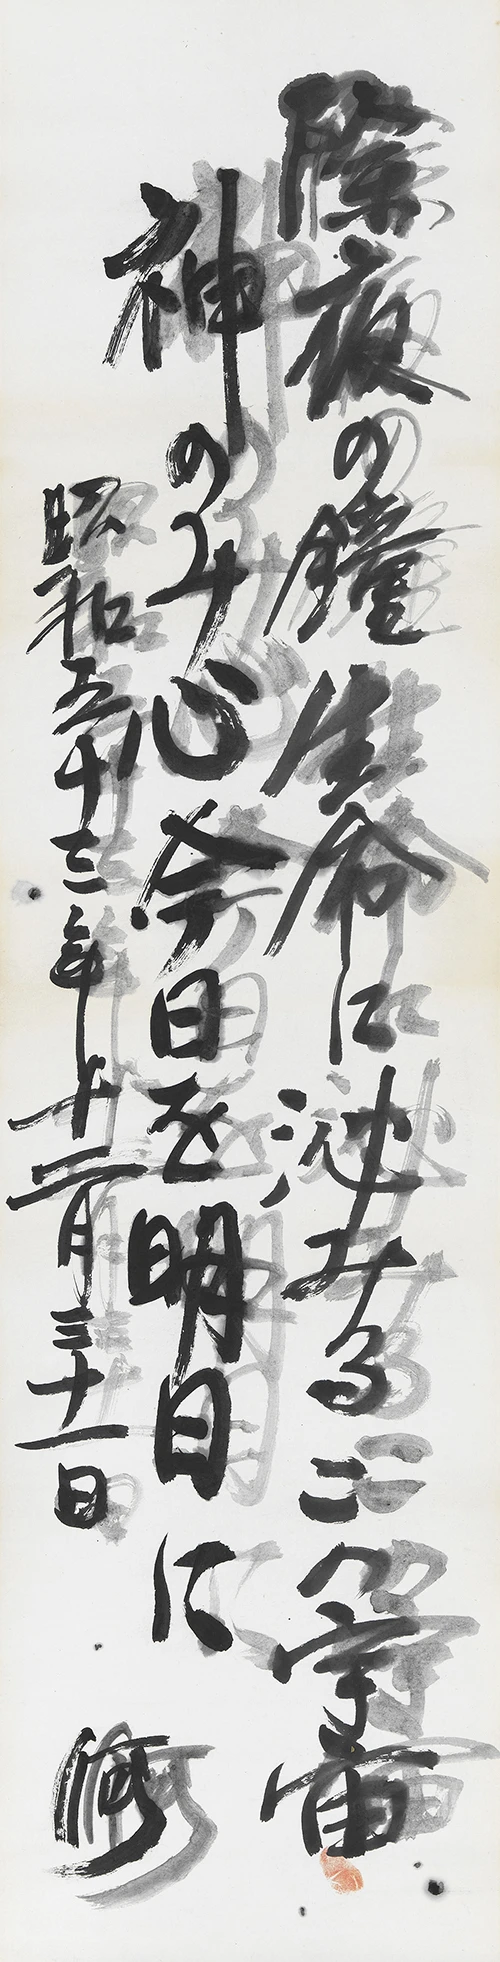 除夜の鐘生命に沁みるこの宇宙
神のみ心今日を明日に
昭和五十三年十二月三十一日